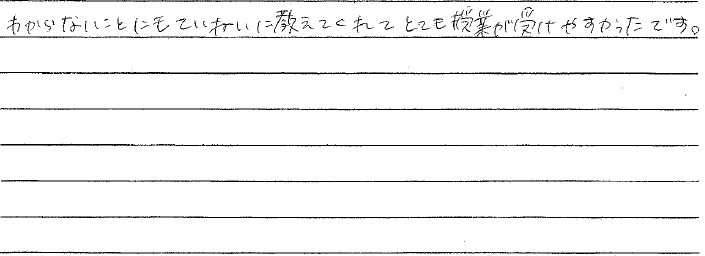 わからないことにもていねいに教えてくれてとても授業が受けやすかったです。